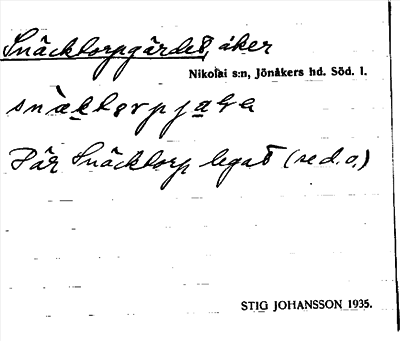 Snäcktorpgärdet, åker
Nikolai s:n, Jönåkers hd. Söd. l.
Där Snäcktorp legat (se d. o.)
STIG JOHANSSON 1935.